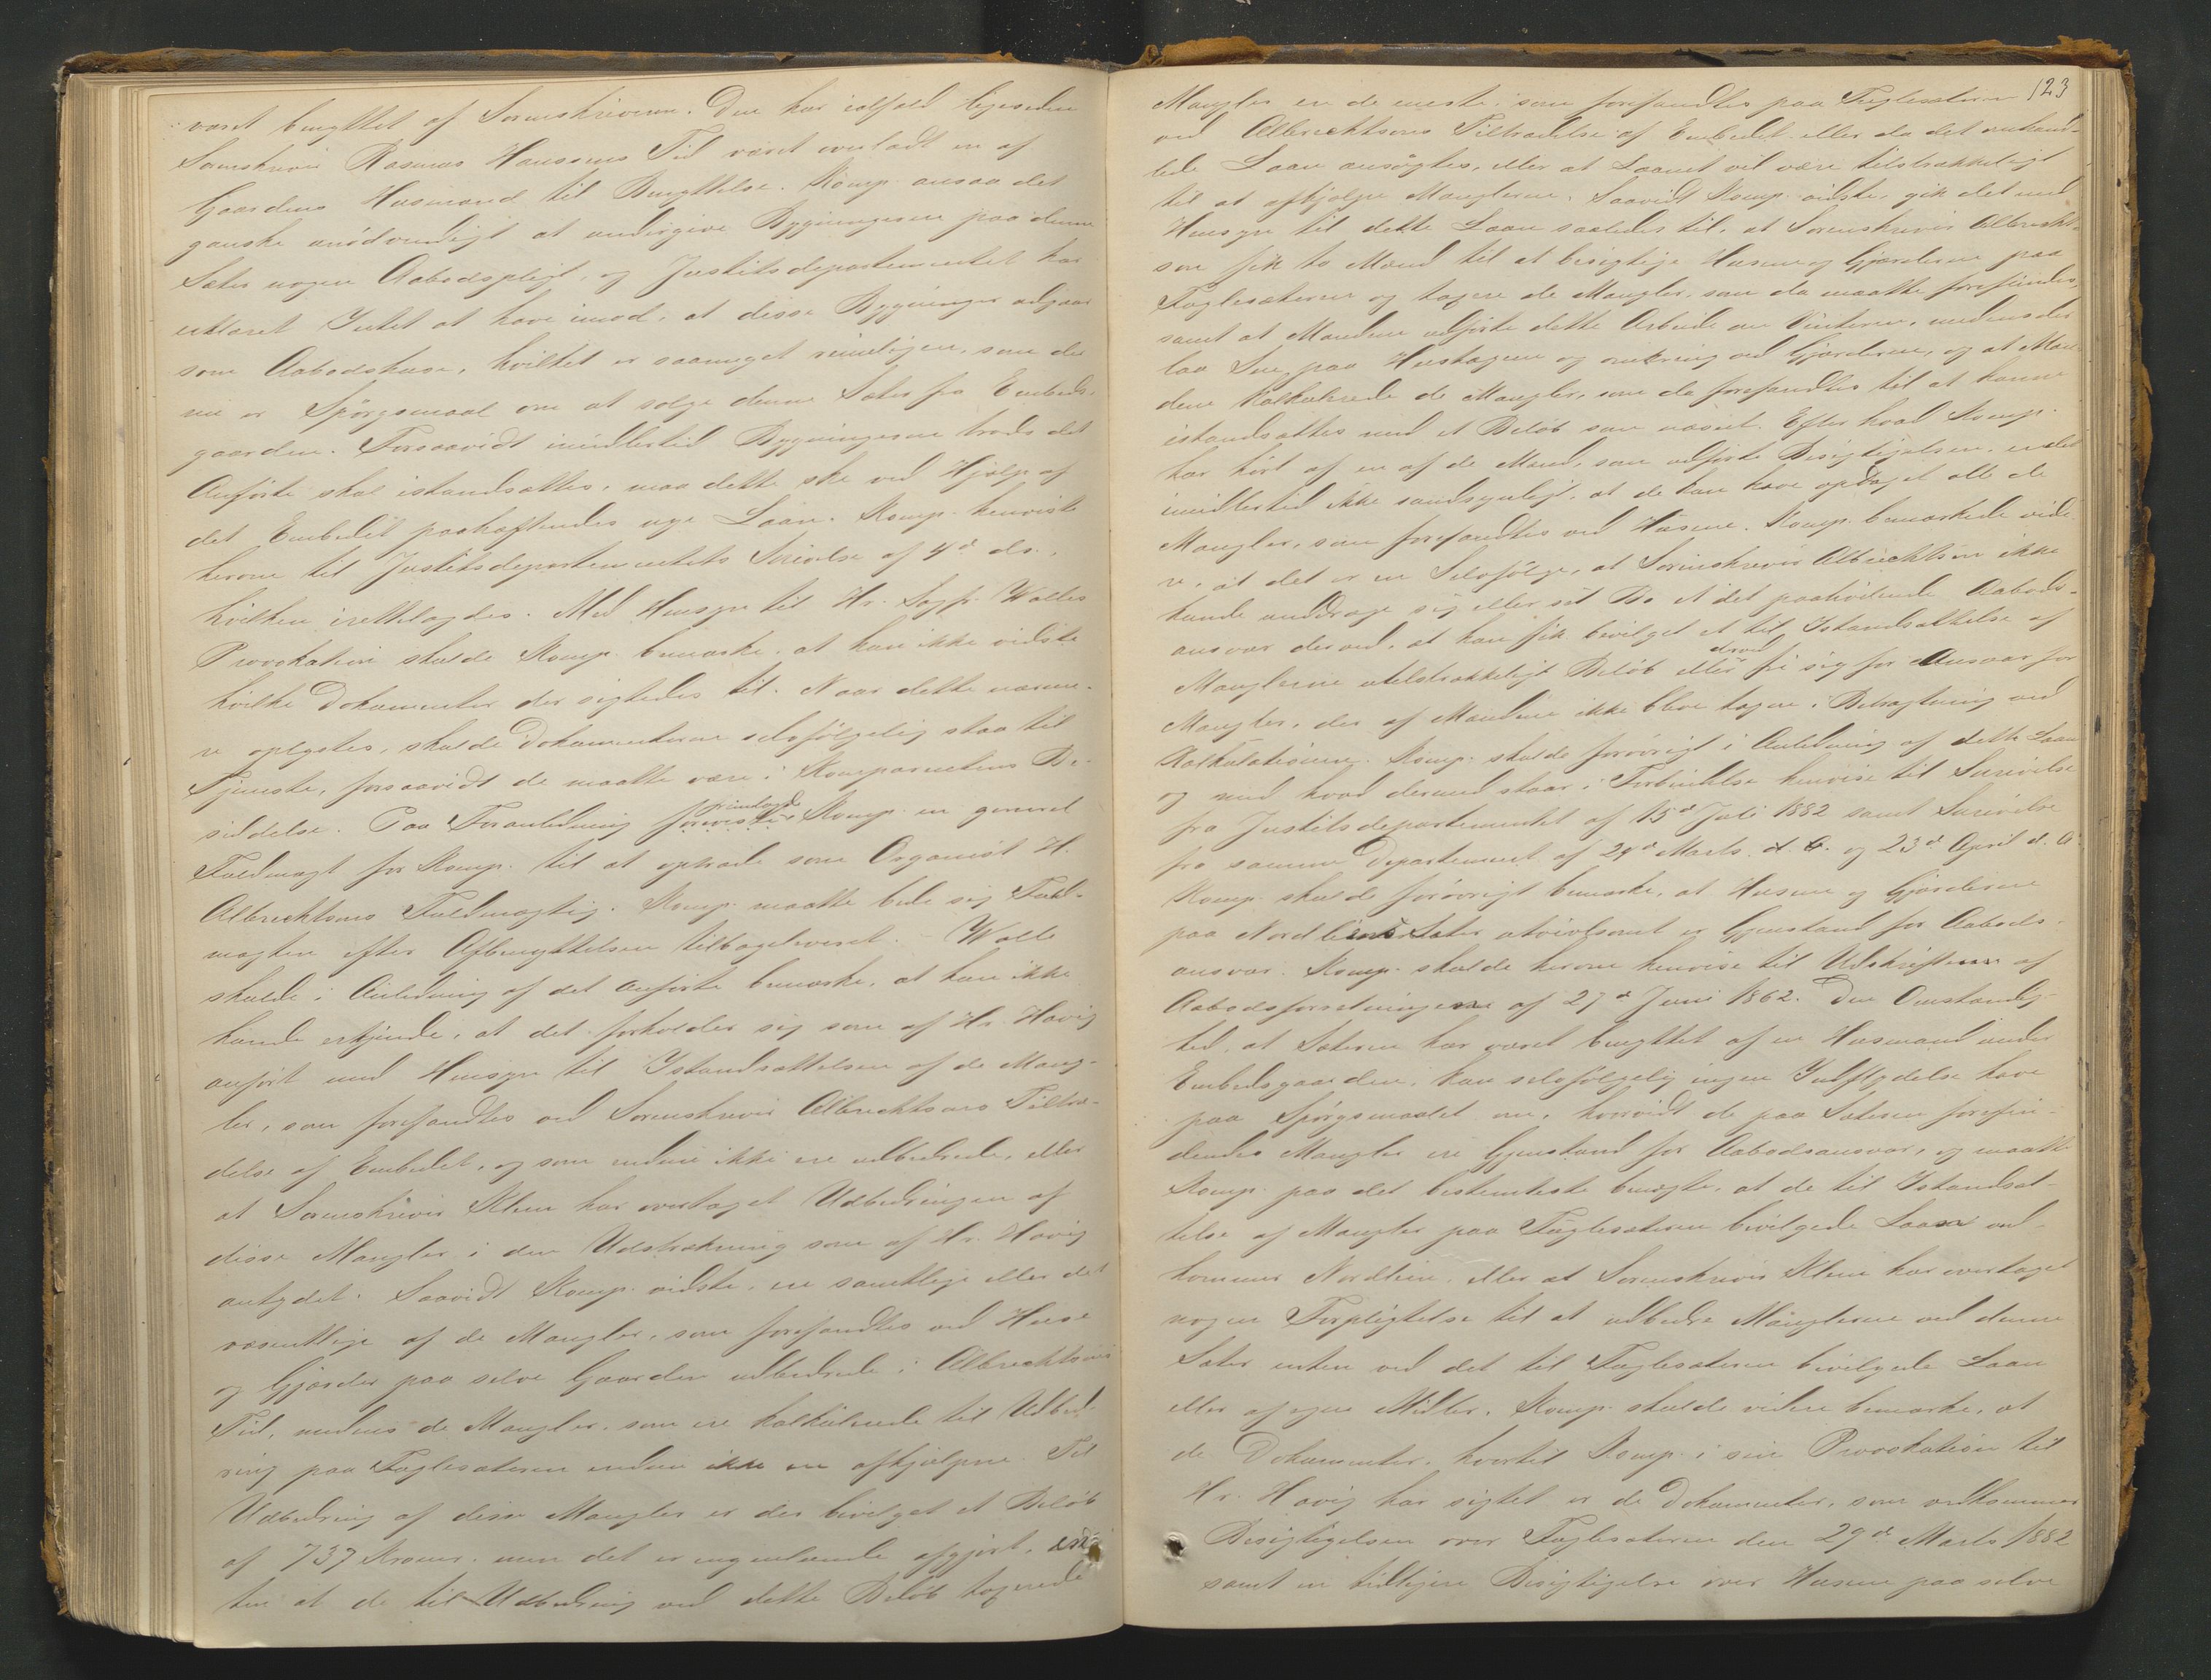 været benyttet af Sorenskriveren. Den har ialfald ligesiden
Sorenskriver Rasmus Hanssens Tid været overladt en af
Gaardens Husmænd til Benyttelse. Komp. ansaa det
ganske unödvendigt at undergive Bygningerne paa denne
Sæter nogen Aabodspligt, og Justitsdepartementet har
erklæret Intet at have imod, at disse Bygninger udgaar
som Aabodshuse, hvilket er saameget rimeligere, som der
nu er Spörgsmaal om at sælge denne Sæter fra Embeds-
gaarden. Forsaavidt imidlertid Bygningerne trods det
Anförte skal istandsættes, maa dette ske ved Hjælp af
det Embedet paahæftendes nye Laan. Komp. henviste
herom til Justitsdepartementets Skrivelse af 4de ds.,
hvilken irettelagdes. Med Hensyn til Hr. Sagf. Wolles
Provokation skulde Komp. bemærke, at han ikke vidste
hvilke Dokumenter der sigtedes til. Naar dette nærme-
re oplystes, skulde Dokumenterne selvfölgelig staa til
Tjeneste, forsaavidt de maatte være i Komparentens Be-
siddelse. Paa Foranledning foreviste Komp. en generel
Fuldmagt for Komp. til at optræde som Organist H.
Albrechtsons Fuldmægtig. Komp. maatte bede sig Fuld-
magten efter Afbenyttelsen tilbageleveret. – Wolle
skulde i Anledning af det Anförte bemærke, at han ikke
kunde erkjende, at det forholder sig som af Hr. Hovig
anfört med Hensyn til Istandsættelsen af de Mang-
ler, som forefandtes ved Sorenskriver Albrechtsons Tiltræ-
delse af Embedet, og som endnu ikke ere udbedrede, eller
at Sorenskriver Klem har overtaget Udbedringen af
disse Mangler i den Udstrækning som af Hr. Hovig
antydet. Saavidt Komp. vidste, ere samtlige eller det
væsentlige af de Mangler, som forefandtes ved Huse
og Gjærder paa selve Gaarden udbedrede i Albrechtsons
Tid, medens de Mangler, som ere kalkulerede til Udbed-
ring paa Fuglesæteren endnu ikke ere afhjulpne. Til
Udbedring af disse Mangler er der bevilget et Belöb
af 737 Kroner, men det er ingenlunde afgjort, en-
ten at de til Udbedring ved dette Belöb tagerede
123
Mangler er de eneste, som forefandtes paa Fuglesæteren
ved Albrechtsons Tiltrædelse af Embedet eller da det omhand-
lede Laan ansögtes, eller at Laanet vil være tilstrækkeligt
til at afhjælpe Manglerne. Saavidt Komp. vidste, gik det med
Hensyn til dette Laan saaledes til, at Sorenskriver Albrecht-
son fik to Mænd til at besigtige Husene og Gjærderne paa
Fuglesæteren og tagere de Mangler, som da maatte forefindes,
samt at Mændene udförte dette Arbeide om Vinteren, medens der
laa Sne paa Hustagene og omkring ved Gjærderne, og at Mæn-
dene kalkulerede de Mangler, som da forefandtes til at kunne
istandsættes med et Belöb som nævnt. Efter hvad Komp.
har hört af en af de Mænd, som udförte Besigtigelsen, er det
imidlertid ikke sandsynligt, at de kan have opdaget alle de
Mangler, som forefandtes ved Husene. Komp. bemærkede vide-
re, at det er en Selvfölge, at Sorenskriver Albrechtson ikke
kunde unddrage sig eller sit Bo et det paahvilende Aabods-
ansvar derved, at han fik bevilget et til Istandsættelse af
Manglerne utilstrækkeligt Belöb eller derved fri sig for Ansvar for
Mangler, der af Mændene ikke bleve tagne i Betragtning ved
Kalkulationen. Komp. skulde forövrigt i Anledning af dette Laan
og med hvad dermed staar i Forbindelse henvise til Skrivelse
fra Justitsdepartementet af 15de Juli 1882 samt Skrivelse
fra samme Departement af 29de Marts d. A. og 23de April d. A.
Komp. skulde forövrigt bemærke, at Husene og Gjærderne
paa Nordliens Sæter utvivlsomt er Gjenstand for Aabods-
ansvar. Komp. skulde herom henvise til Udskriften af
Aabodsforretningerne af 27de Juni 1862. Den Omstændig-
hed, at Sæteren har været benyttet af en Husmand under
Embedsgaarden, kan selvfölgelig ingen Indflydelse have
paa Spörgsmaalet om, hvorvidt de paa Sæteren forefin-
dendes Mangler ere Gjenstand for Aabodsansvar, og maatte
Komp. paa det bestemteste benægte, at de til Istandsæt-
telse af Mangler paa Fuglesæteren bevilgede Laan ved-
kommer Nordlien, eller at Sorenskriver Klem har overtaget
nogen Forpligtelse til at udbedre Manglerne ved denne
Sæter enten ved det til Fuglesæteren bevilgede Laan
eller af egne Midler. Komp. skulde videre bemærke, at
de Dokumenter, hvortil Komp. i sin Provokation til
Hr. Hovig har sigtet er de Dokumenter, som vedkommer
Besigtigelsen over Fuglesæteren den 29de Marts 1882
samt en tidligere Besigtigelse over Husene paa selve